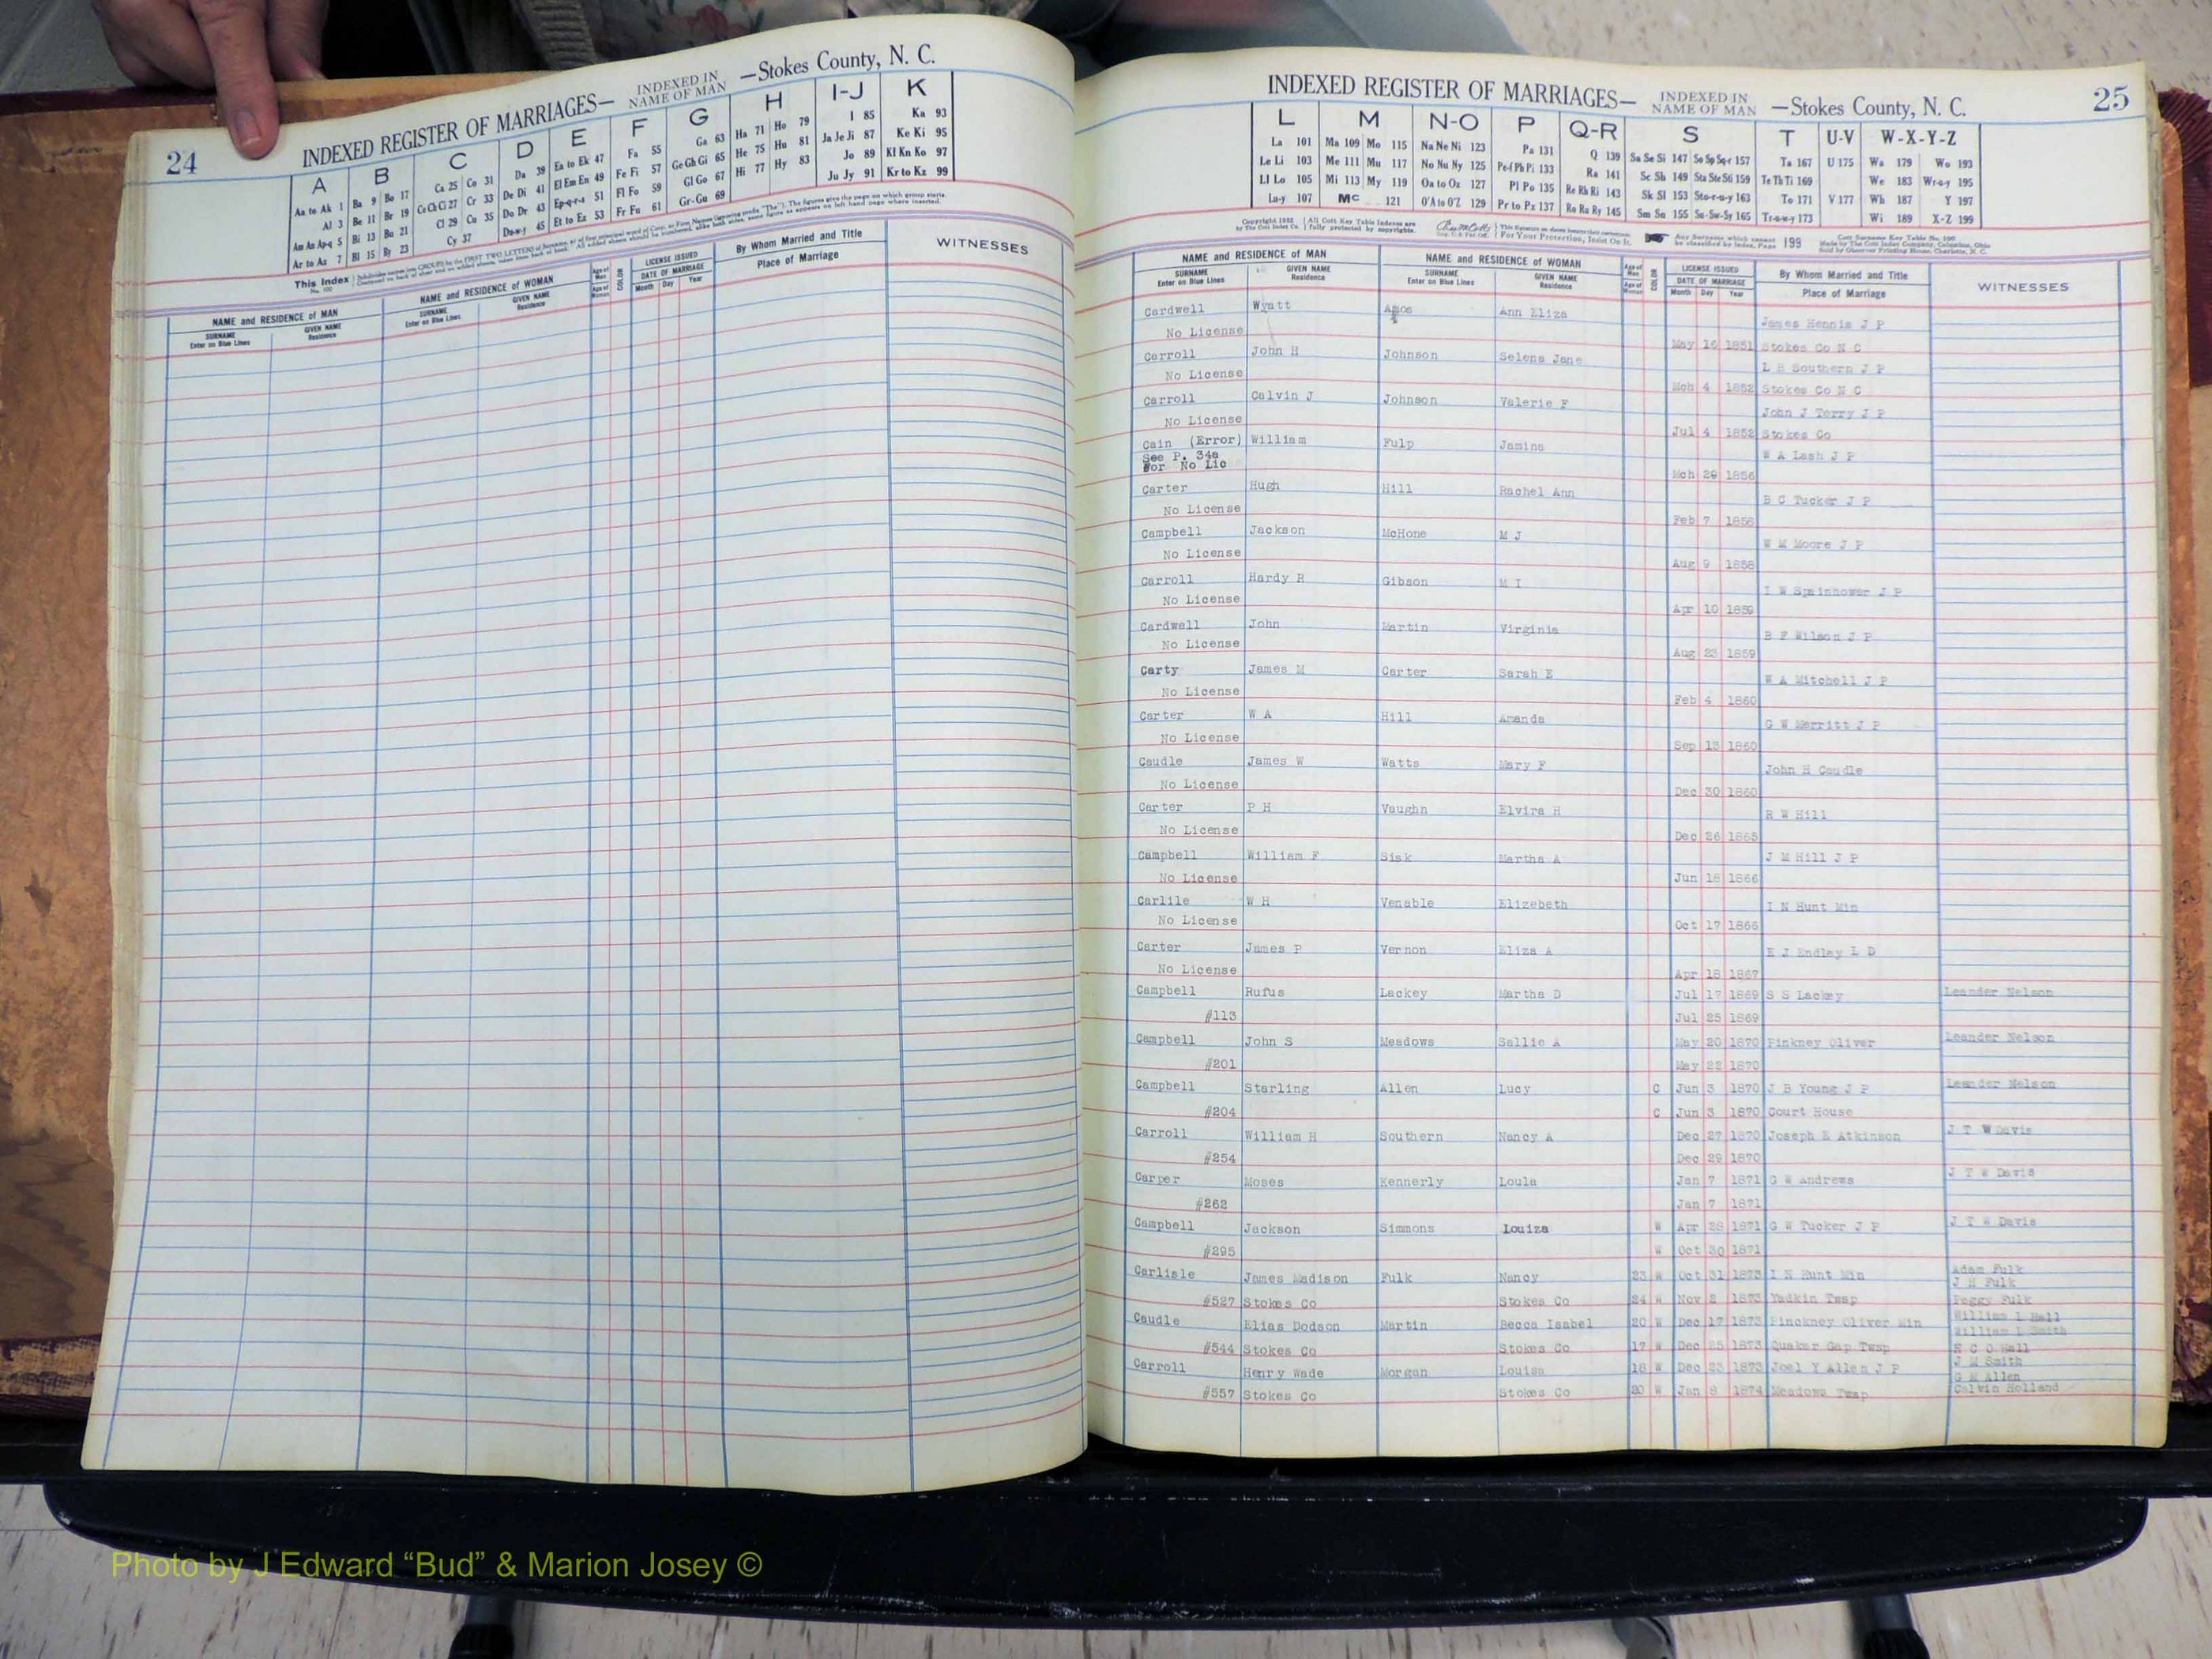 24
INDEXED REGISTER OF MARRIAGES— INDEXED IN NAME OF MAN —Stokes County, N. C.
A B C D E F G H I-J K
Aa to Ak 1 Ba 9 Bo 17 Ca 25 Co 31 Da 39 Ea to Ek 47 Fa 55 Ga 63 Ha 71 Ho 79 I 85 Ka 93
Al 3 Be 11 Br 19 Ce Ch Ci 27 Cr 33 De Di 41 El Em En 49 Fe Fi 57 Ge Gh Gi 65 He 75 Hu 81 Ja Je Ji 87 Ke Ki 95
Am An Ap-q 5 Bi 13 Bu 21 Cl 29 Cu 35 Do Dr 43 Ep-q-r-s 51 Fl Fo 59 Gl Go 67 Hi 77 Hy 83 Jo 89 Kl Kn Ko 97
Ar to Az 7 Bl 15 By 23 Cy 37 Du-w-y 45 Et to Ez 53 Fr Fu 61 Gr-Gu 69 Ju Jy 91 Kr to Kz 99
This Index
NAME and RESIDENCE of MAN NAME and RESIDENCE of WOMAN Age of Man Age of Woman COLOR LICENSE ISSUED DATE OF MARRIAGE By Whom Married and Title WITNESSES
SURNAME Enter on Blue Lines GIVEN NAME Residence SURNAME Enter on Blue Lines GIVEN NAME Residence Month Day Year Place of Marriage
INDEXED REGISTER OF MARRIAGES— INDEXED IN NAME OF MAN —Stokes County, N. C. 25
L M N-O P Q-R S T U-V W-X-Y-Z
La 101 Ma 109 Mo 115 Na Ne Ni 123 Pa 131 Q 139 Sa Se Si 147 So Sp Sq-r 157 Ta 167 U 175 Wa 179 Wo 193
Le Li 103 Me 111 Mu 117 No Nu Ny 125 Pe-f Ph Pi 133 Ra 141 Sc Sh 149 Sta Ste Sti 159 Te Th Ti 169 We 183 Wr-u-y 195
Ll Lo 105 Mi 113 My 119 Oa to Oz 127 Pl Po 135 Re Rh Ri 143 Sk Sl 153 Sto-r-u-y 163 To 171 V 177 Wh 187 Y 197
Lu-y 107 Mc 121 O'A to O'Z 129 Pr to Pz 137 Ro Ru Ry 145 Sm Sn 155 Su-Sw-Sy 165 Tr-u-w-y 173 Wi 189 X-Z 199
NAME and RESIDENCE of MAN NAME and RESIDENCE of WOMAN Age of Man Age of Woman COLOR LICENSE ISSUED DATE OF MARRIAGE By Whom Married and Title WITNESSES
SURNAME Enter on Blue Lines GIVEN NAME Residence SURNAME Enter on Blue Lines GIVEN NAME Residence Month Day Year Place of Marriage
Cardwell Wyatt Amos Ann Eliza James Hennis J P
No License May 16 1851 Stokes Co N C
Carroll John H Johnson Selena Jane L H Southern J P
No License Mch 4 1852 Stokes Co N C
Carroll Calvin J Johnson Valerie F John J Terry J P
No License Jul 4 1852 Stokes Co
Cain (Error) William Fulp Jamina W A Lash J P
See P. 34a
For No Lic Mch 29 1856
Carter Hugh Hill Rachel Ann B C Tucker J P
No License Feb 7 1856
Campbell Jackson McHone M J W M Moore J P
No License Aug 9 1858
Carroll Hardy R Gibson M I I W Spainhower J P
No License Apr 10 1859
Cardwell John Martin Virginia B F Wilson J P
No License Aug 23 1859
Carty James M Carter Sarah E W A Mitchell J P
No License Feb 4 1860
Carter W A Hill Amanda G W Merritt J P
No License Sep 13 1860
Caudle James W Watts Mary F John H Caudle
No License Dec 30 1860
Carter P H Vaughn Elvira H R W Hill
No License Dec 26 1865
Campbell William F Sisk Martha A J M Hill J P
No License Jun 18 1866
Carlile W H Venable Elizebeth I N Hunt Min
No License Oct 17 1866
Carter James P Vernon Eliza A E J Endley L D
No License Apr 18 1867
Campbell Rufus Lackey Martha D Jul 17 1869 S S Lackey Leander Nelson
#113 Jul 25 1869
Campbell John S Meadows Sallie A May 20 1870 Pinkney Oliver Leander Nelson
#201 May 22 1870
Campbell Starling Allen Lucy C Jun 3 1870 J B Young J P Leander Nelson
#204 C Jun 3 1870 Court House
Carroll William H Southern Nancy A Dec 27 1870 Joseph E Atkinson J T W Davis
#254 Dec 29 1870
Carper Moses Kennerly Loula Jan 7 1871 G W Andrews J T W Davis
#262 Jan 7 1871
Campbell Jackson Simmons Louiza W Apr 28 1871 G W Tucker J P J T W Davis
#295 W Oct 30 1871
Carlisle James Madison Fulk Nancy 23 W Oct 31 1873 I N Hunt Min Adam Fulk
J H Fulk
#527 Stokes Co Stokes Co 24 W Nov 2 1873 Yadkin Twsp Peggy Fulk
Caudle Elias Dodson Martin Becca Isabel 20 W Dec 17 1873 Pinckney Oliver Min William L Hall
William L Smith
#544 Stokes Co Stokes Co 17 W Dec 25 1873 Quaker Gap Twsp N C O Hall
Carroll Henry Wade Morgan Louisa 18 W Dec 23 1873 Joel Y Allen J P J M Smith
G M Allen
#557 Stokes Co Stokes Co 20 W Jan 8 1874 Meadows Twsp Calvin Holland
Photo by J Edward “Bud” & Marion Josey ©